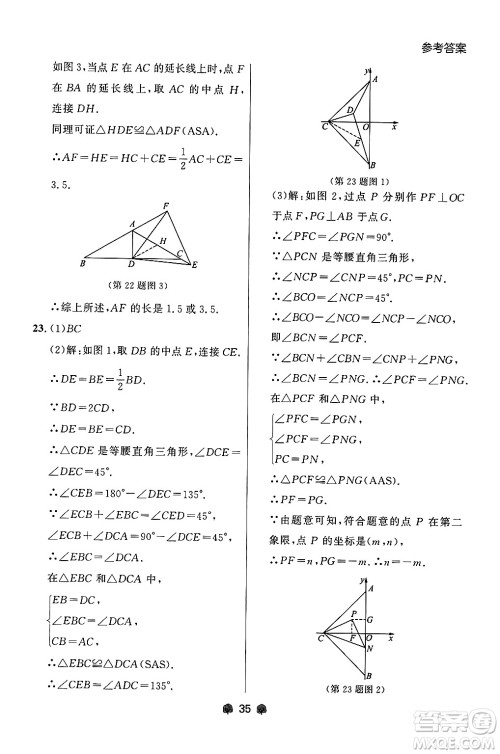 参考答案
如图 3,当点 E 在 AC 的延长线上时,点 F
在 BA 的延长线上,取 AC 的中点 H,
连接 DH.
同理可证△HDE≌△ADF(ASA).
∴AF=HE=HC+CE=1/2AC+CE=
3.5.
F
A
H
B
D
C
E
(第 22 题图 3)
∴综上所述,AF 的长是 1.5 或 3.5.
23.(1)BC
(2)解:如图 1,取 DB 的中点 E,连接 CE.
∴DE=BE=1/2BD.
∵BD=2CD,
∴BE=DE=CD.
∴△CDE 是等腰直角三角形,∠DCE=
∠DEC=45°.
∴∠CEB=180°-45°=135°.
∵∠EBC+∠ECB=∠DEC=45°,
∠DCA=90°-45°-∠ECB,
∴∠EBC=∠DCA.
在△EBC 和△DCA 中,
EB=DC,
∠EBC=∠DCA,
BC=CA,
∴△EBC≌△DCA(SAS).
∴∠CEB=∠ADC=135°.
y
A
D
C
O
x
E
B
(第 23 题图 1)
(3)解:如图 2,过点 P 分别作 PF⊥OC
于点 F,PG⊥BA 于点 G.
∴∠PFC=∠PGN=90°.
∵△ABC 是等腰直角三角形,
∴∠BCO=∠CBO=45°.
∴∠BCO=∠BCN+∠NCO=45°,
即∠BCN=45°-∠NCO.
∵∠BCN+∠CBN+∠BNC=180°,
∠BCN=∠PNC,
在△PCF 和△PNG 中,
∠PFC=∠PGN,
∠PCF=∠PNG,
PC=PN,
∴△PCF≌△PNG(AAS).
∴PF=PG.
∵由题意可知,符合题意的点 P 在第二
象限,点 P 的坐标是(m,n),
∴PF=n,PG=-m.
y
A
P
G
C
F
O
x
N
B
(第 23 题图 2)
35
答案圈
MXQE.COM